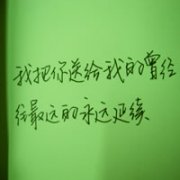 我把你送给我的曾经
给最远的永远延续